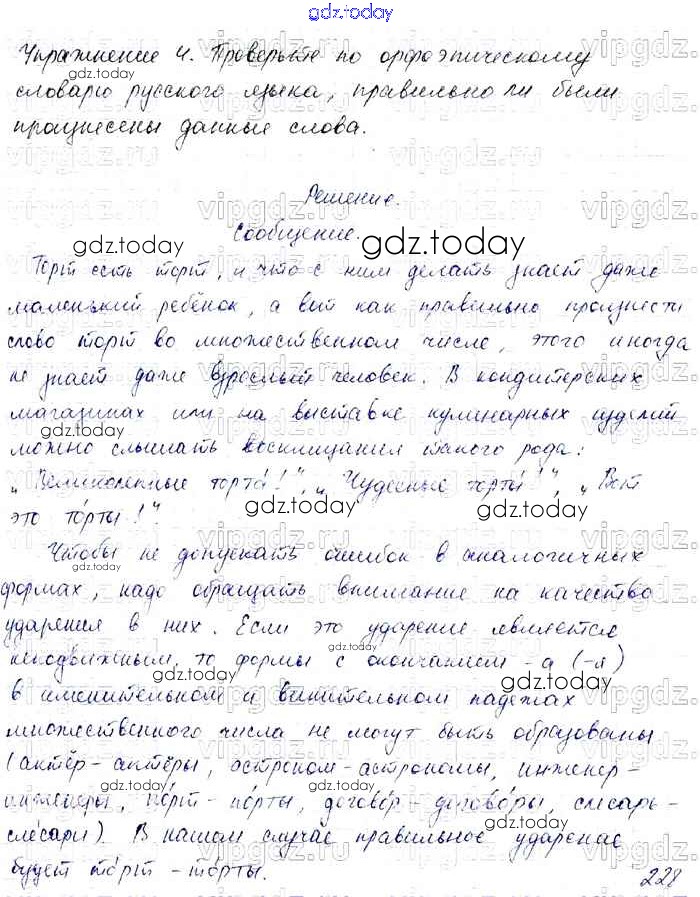 gdz.today
Упражнение 4. Проверьте по орфоэпическому
словарю русского языка, правильно ли были
произнесены данные слова.
Решение.
Сообщение.
Торт есть торт, и что с ним делать знает даже
маленький ребёнок, а вот как правильно произнести
слово торт во множественном числе, этого иногда
не знает даже взрослый человек. В кондитерских
магазинах или на выставке кулинарных изделий
можно слышать восклицания такого рода:
„Великолепные торта́!", „Чудесные торты́!", „Вот
это то́рты!".
Чтобы не допускать ошибок в аналогичных
формах, надо обращать внимание на качество
ударения в них. Если это ударение является
неподвижным, то формы с окончанием -а (-я)
в именительном и винительном падежах
множественного числа не могут быть образованы
(актёр - актёры, астроном - астрономы, инженер -
инженеры, по́рт - по́рты, догово́р - догово́ры, слесарь -
сле́сари). В нашем случае правильное ударение
будет то́рт - то́рты.
228